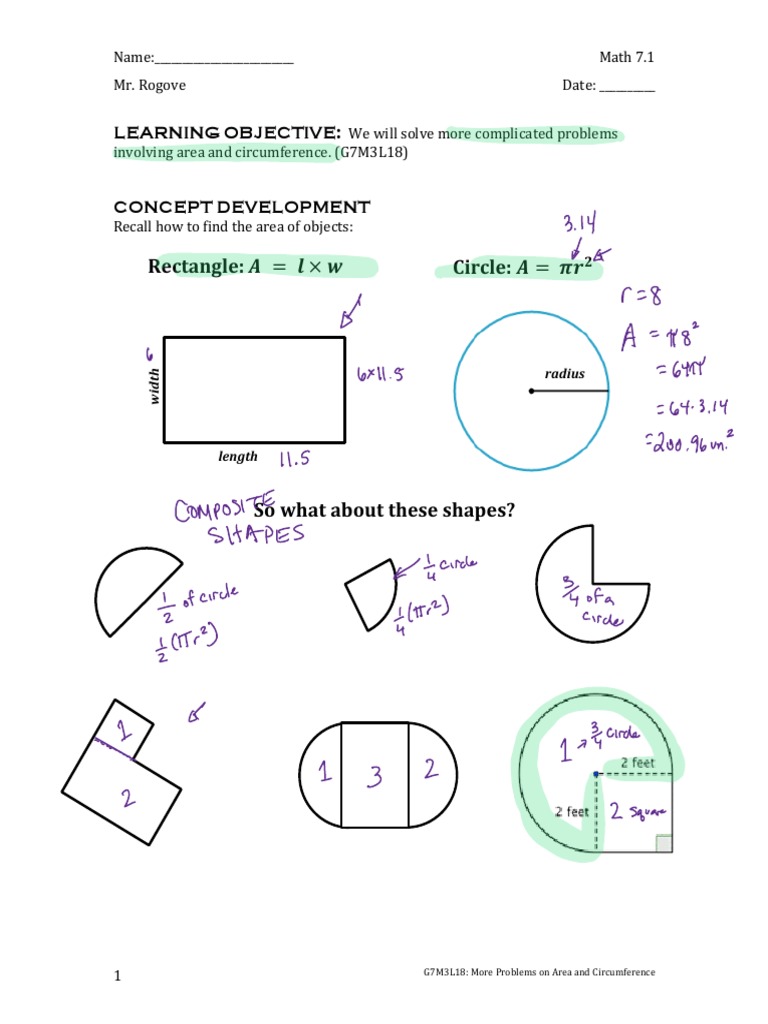 Name:_________________________ Math 7.1
Mr. Rogove Date: __________
LEARNING OBJECTIVE: We will solve more complicated problems
involving area and circumference. (G7M3L18)
CONCEPT DEVELOPMENT
Recall how to find the area of objects:
3.14
Rectangle: A = l × w
Circle: A = πr²
6
width
6×11.5
length 11.5
radius
r=8
A = π8²
= 64π
= 64·3.14
=200.96un.²
COMPOSITE
SHAPES
So what about these shapes?
1/2 of circle
1/2 (πr²)
1/4 circle
1/4 (πr²)
3/4 of a
circle
1
2
1 3 2
1 → 3/4 circle
2 feet
2 feet
2 square
1
G7M3L18: More Problems on Area and Circumference